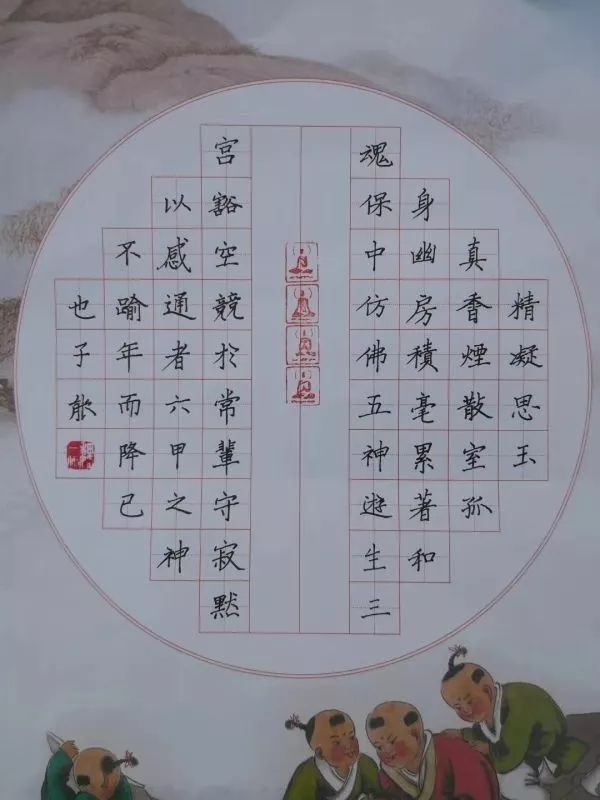 精凝思玉
真香煙散室孤
身幽房積毫累著和
魂保中仿佛五神遊生三
宮豁空競於常輩守寂默
以感通者六甲之神
不踰年而降已
也子能